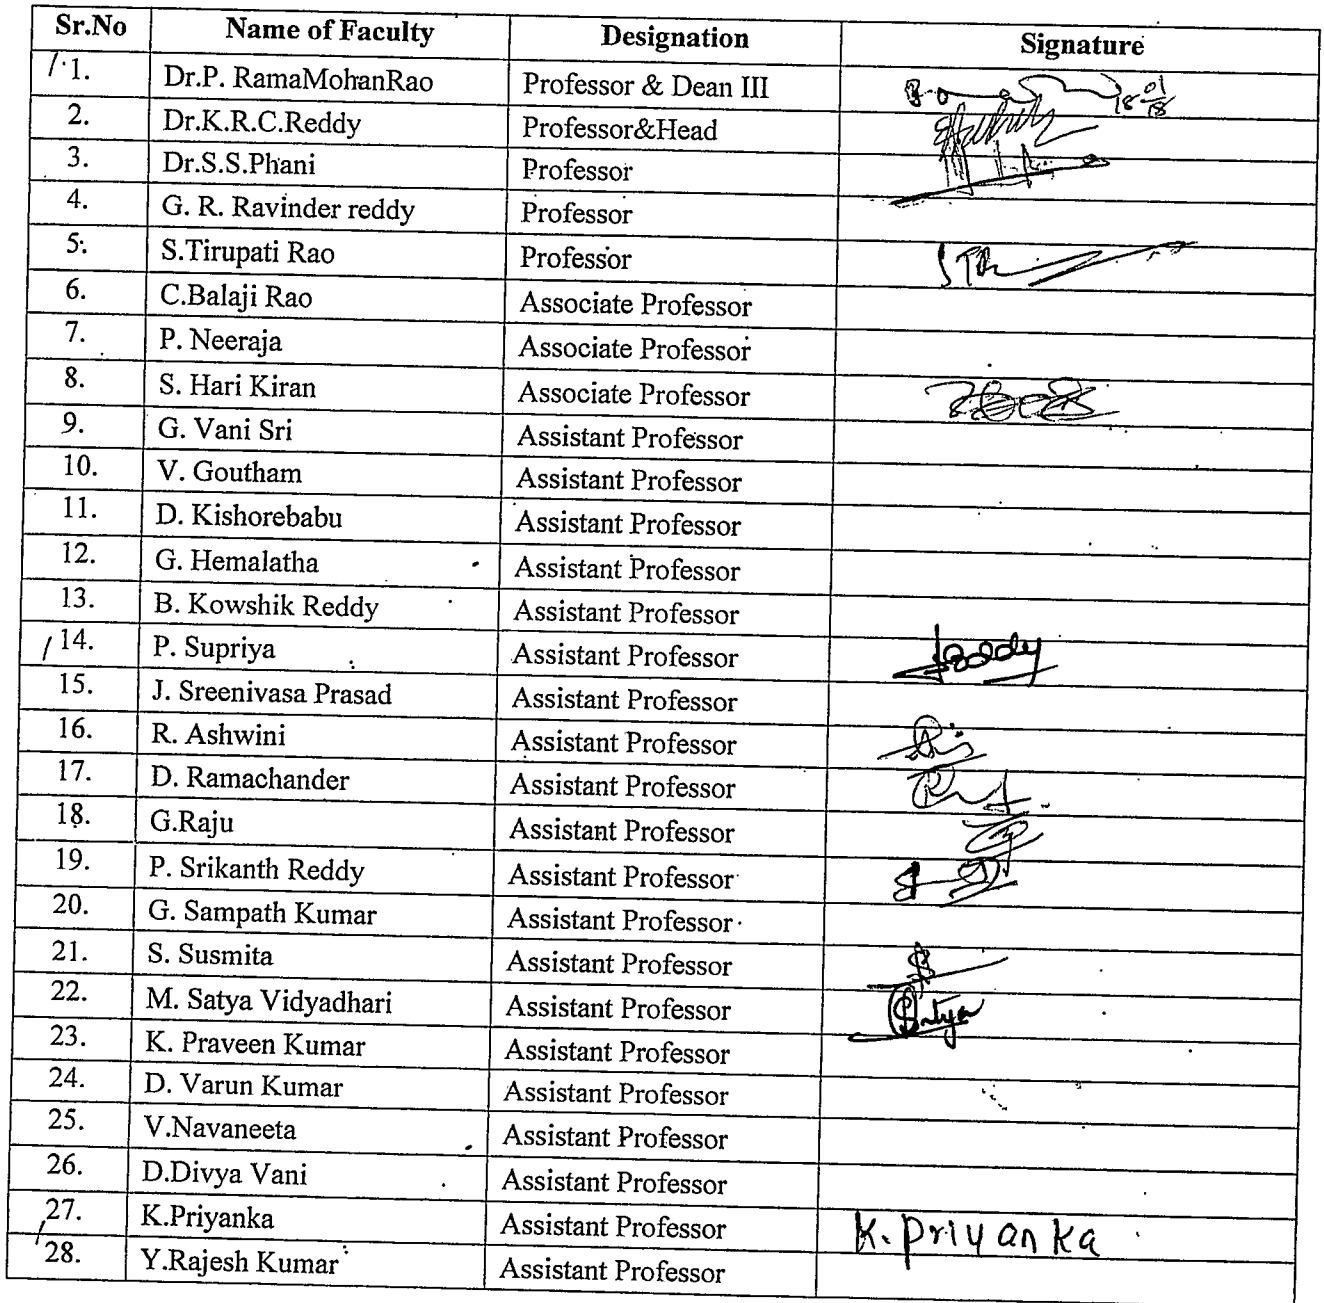 Sr.No Name of Faculty Designation Signature
1. Dr.P. RamaMohanRao Professor & Dean III 18-01/18
2. Dr.K.R.C.Reddy Professor&Head
3. Dr.S.S.Phani Professor
4. G. R. Ravinder reddy Professor
5. S.Tirupati Rao Professor
6. C.Balaji Rao Associate Professor
7. P. Neeraja Associate Professor
8. S. Hari Kiran Associate Professor
9. G. Vani Sri Assistant Professor
10. V. Goutham Assistant Professor
11. D. Kishorebabu Assistant Professor
12. G. Hemalatha Assistant Professor
13. B. Kowshik Reddy Assistant Professor
14. P. Supriya Assistant Professor
15. J. Sreenivasa Prasad Assistant Professor
16. R. Ashwini Assistant Professor
17. D. Ramachander Assistant Professor
18. G.Raju Assistant Professor
19. P. Srikanth Reddy Assistant Professor
20. G. Sampath Kumar Assistant Professor
21. S. Susmita Assistant Professor
22. M. Satya Vidyadhari Assistant Professor Satya
23. K. Praveen Kumar Assistant Professor
24. D. Varun Kumar Assistant Professor
25. V.Navaneeta Assistant Professor
26. D.Divya Vani Assistant Professor
27. K.Priyanka Assistant Professor K. Priyanka
28. Y.Rajesh Kumar Assistant Professor